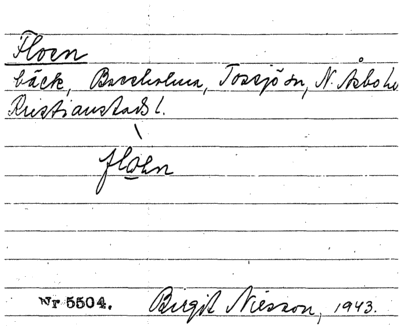 Floen
bäck, Barsholma, Tossjö sn, N. Åsbo hd
Kristianstads l.
floen
Nr 5504. Birgit Nilsson, 1943.